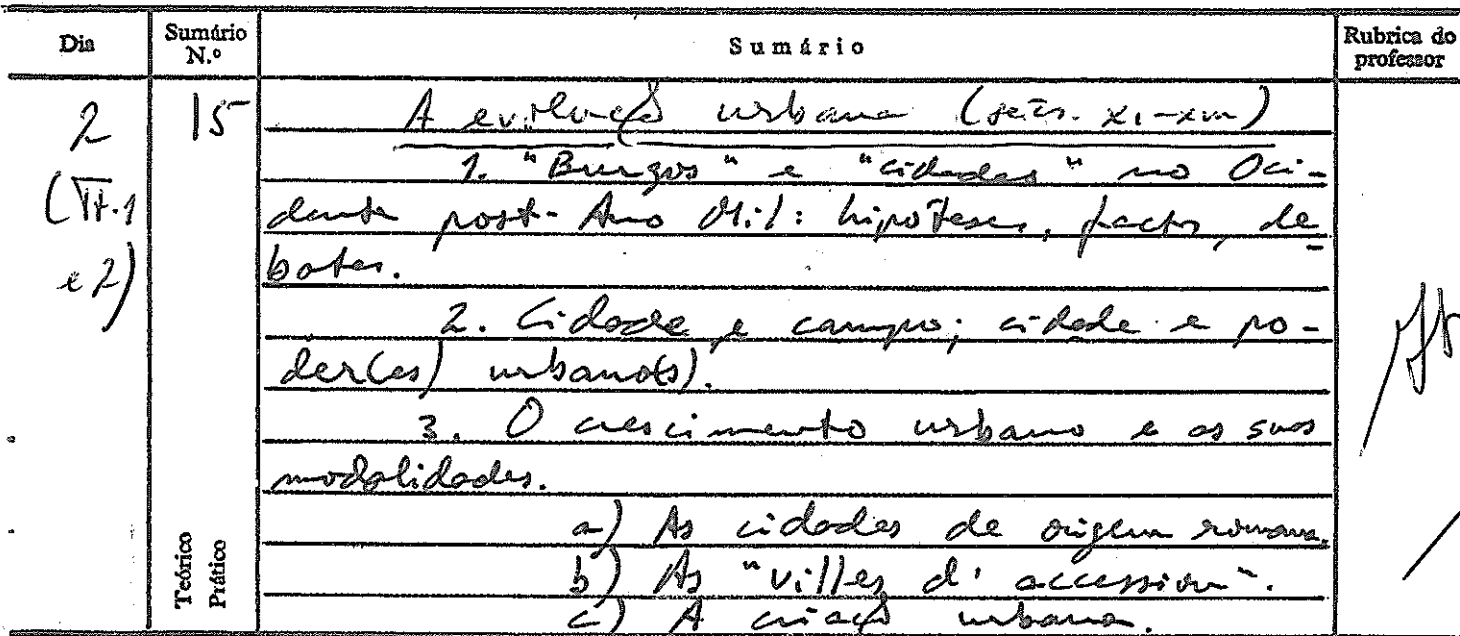 Dia Sumário N.º Sumário Rubrica do professor
2 15 A evolução urbana (sécs. XI-XIII)
1. "Burgos" e "cidades" no Oci-
(TT.1 dente post-Ano Mil: hipóteses, factos, de
e 2) bates.
2. Cidade e campo; cidade e po-
der(es) urbano(s).
3. O crescimento urbano e as suas
modalidades.
a) As cidades de origem romana.
b) As "villes d'accession".
c) A criação urbana.
Teórico
Prático